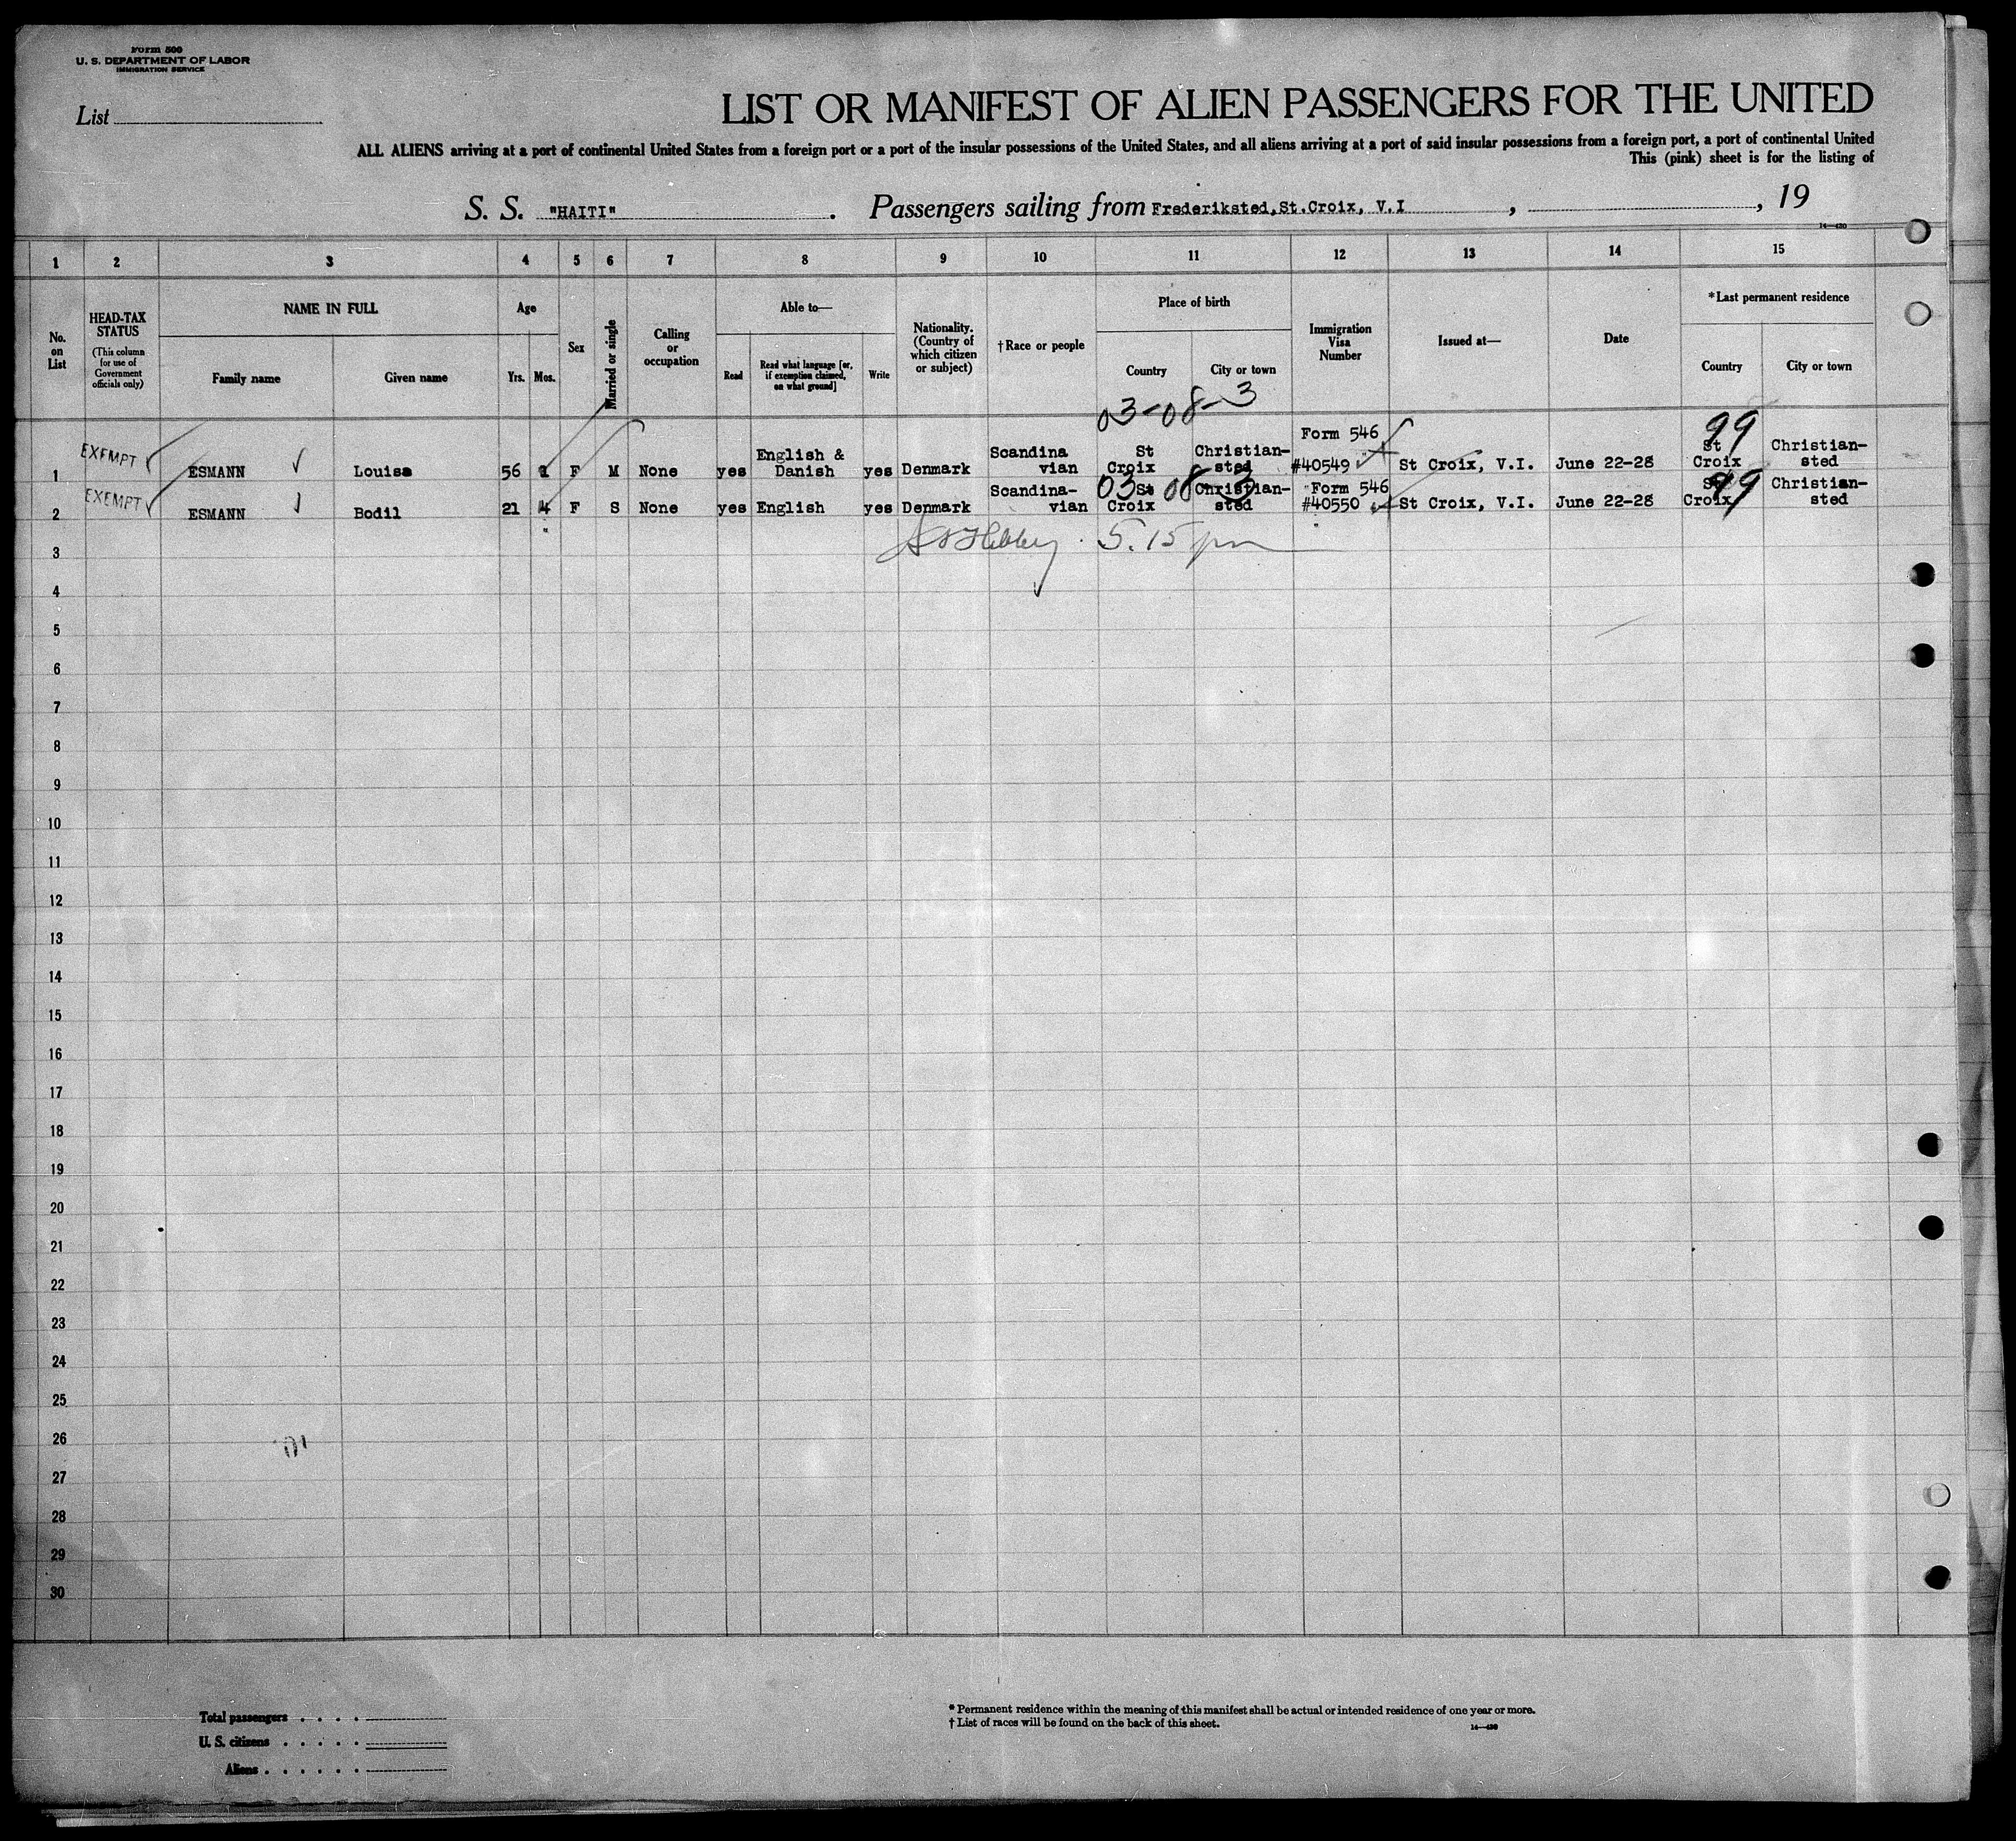 Form 500
U. S. DEPARTMENT OF LABOR
IMMIGRATION SERVICE
List
LIST OR MANIFEST OF ALIEN PASSENGERS FOR THE UNITED
ALL ALIENS arriving at a port of continental United States from a foreign port or a port of the insular possessions of the United States, and all aliens arriving at a port of said insular possessions from a foreign port, a port of continental United
This (pink) sheet is for the listing of
S. S. "HAITI" . Passengers sailing from Frederiksted, St. Croix, V.I , , 19
14—430
1 2 3 4 5 6 7 8 9 10 11 12 13 14 15
No. on List
HEAD-TAX STATUS
(This column for use of Government officials only)
NAME IN FULL
Family name
Given name
Age
Yrs. Mos.
Sex
Married or single
Calling or occupation
Able to—
Read
Read what language [or, if exemption claimed, on what ground]
Write
Nationality. (Country of which citizen or subject)
†Race or people
Place of birth
Country
City or town
Immigration Visa Number
Issued at—
Date
*Last permanent residence
Country
City or town
03-08-3
99
1 EXEMPT ESMANN Louise 56 F M None yes English & Danish yes Denmark Scandina vian St Croix Christian-sted Form 546 #40549 St Croix, V.I. June 22-28 St Croix Christian-sted
03 08 3
99
2 EXEMPT ESMANN Bodil 21 4 F S None yes English yes Denmark Scandina-vian St Croix Christian-sted Form 546 #40550 St Croix, V.I. June 22-28 St Croix Christian-sted
3 5.15 pm
4
5
6
7
8
9
10
11
12
13
14
15
16
17
18
19
20
21
22
23
24
25
26
27
28
29
30
Total passengers . . . .
U. S. citizens . . . . .
Aliens . . . . . .
* Permanent residence within the meaning of this manifest shall be actual or intended residence of one year or more.
† List of races will be found on the back of this sheet.
14—430